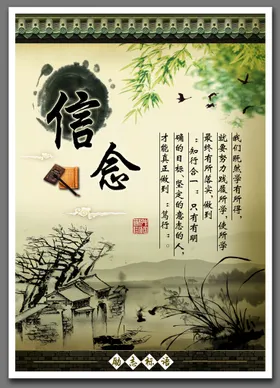 信念
我们既然学有所得，
就要努力践履所学，使所学
最终有所落实，做到
“知行合一”。只有有明
确的目标、坚定的意志的人，
才能真正做到“笃行”。
励志标语